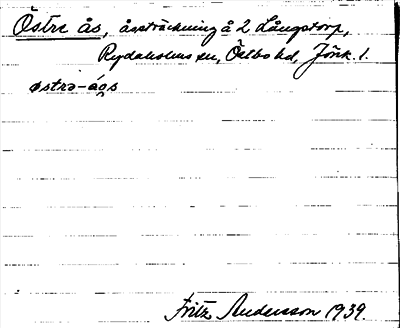 Östre ås, åssträckning å 2 Långstorp,
Rydaholms sn, Östbo hd, Jönk. l.
østrə-ás
Fritz Andersson 1939.